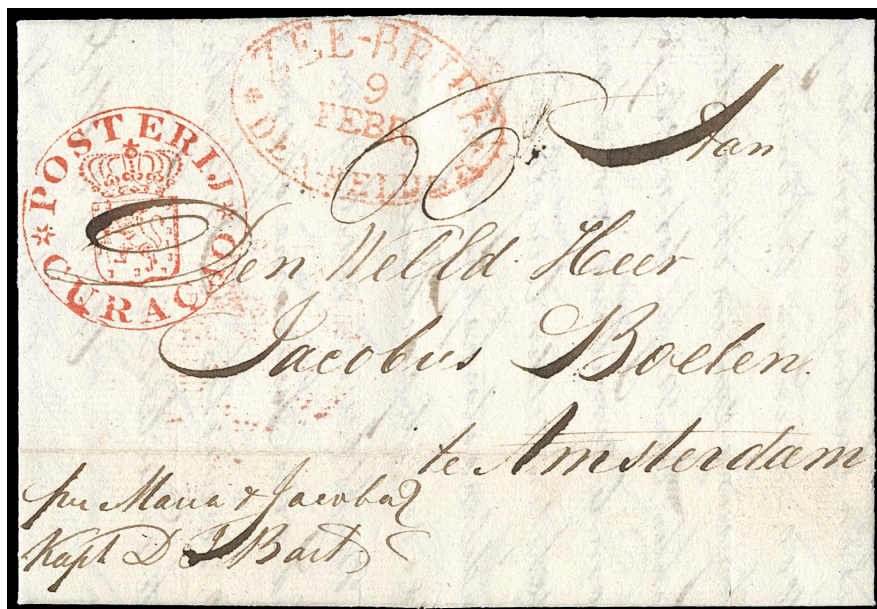 ZEE-BRIEF
9
FEBR
DEN HELDER
POSTERIJ
CURAÇAO
Aan
Den Heer
Jacobus Boelen.
te Amsterdam
per Maria & Jacoba
Kapt D J Bart